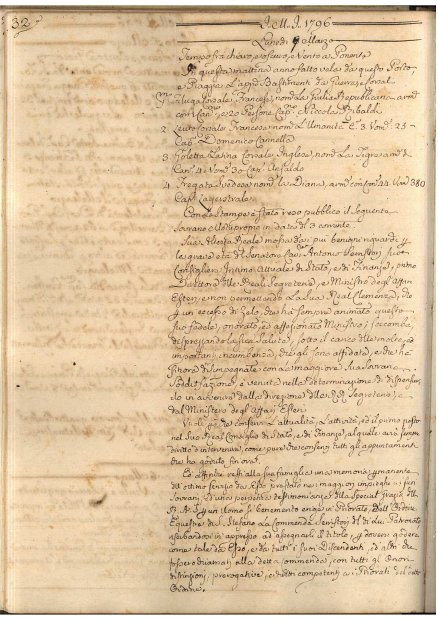 32
A dì 7. 1796
Lunedì 7 Marzo
Tempo fra chiaro, e scuro, e Vento a Ponente
In questa mattina anno fatto vela da questo Porto,
e Piaggia Bastimenti da Guerra, e Corsal.
Corsale Francese, nom.ta La Giulia Republicana arm.
con Can. e 20 Persone Cap.n Niccola Ribaldi
2 Leuto Corsale Francese nom.to L'Umanità C. 3 Uom. 25
Cap. Domenico Cannella
3 Goletta Latina Corsale Inglese, nom.ta La Tigre arm. di
Can. 4 Uom. 30 Cap. Ansaldo
4 Fregata Svedese nom.ta La Diana, arm. con Can. 44 Uom. 380
Cap. Lagerstrale
Con le Stampe è stato reso pubblico il seguente
Sovrano e Motuproprio in data de' 3 corrente
Sua Altezza Reale mossa da' più benigni riguardi per
le qualità del Senatore Cav. Antonio Serristori suo
Consigliere Intimo Attuale di Stato, e di Finanze, primo
Direttore delle Reali Segreterie, e Ministro degl'Affari
Esteri, e non permettendo La Sua Real Clemenza, che
per un eccesso di zelo, che ha sempre animato questo
suo fedele, onorato, ed affezionato Ministro, soccomba,
disprezzando la sua Salute, sotto il carico delle molte, ed
importanti incumbenze, che gli sono affidate, e che ha
finora disimpegnate con la maggiore Sua Sovrana
Soddisfazione, è venuta nella determinazione di dispensar
lo in avvenire dalla direzione delle RR. Segreterie, e
dal Ministero degl'Affari Esteri
Vuole che conservi L'attualità, L'attività, ed il primo posto
nel Suo Real Consiglio di Stato, e di Finanze, al quale avrà sempre
diritto d'intervenire, come pure che conservi tutti gli appuntamenti
che ha goduto finora.
Ed affinchè resti alla sua famiglia una memoria permanente
dell'ottimo servizio da Esso prestato nei maggiori impieghi a' suoi
Sovrani, ed una perpetua testimonianza della special grazia della
R. A. S. per un Uomo sì benemerito erige in Priorato, dell'Ordine
Equestre di S. Stefano La Commenda Serristori del di lui Patronato
riserbandosi in appresso ad assegnarli il titolo, per dovere godere
come tale da Esso, e da tutti i suoi Discendenti, ed altri che
fossero chiamati alla detta commenda, con tutti gl'Onori
distinzioni, prerogative, e diritti competenti a' Priorati del detto
Ordine.